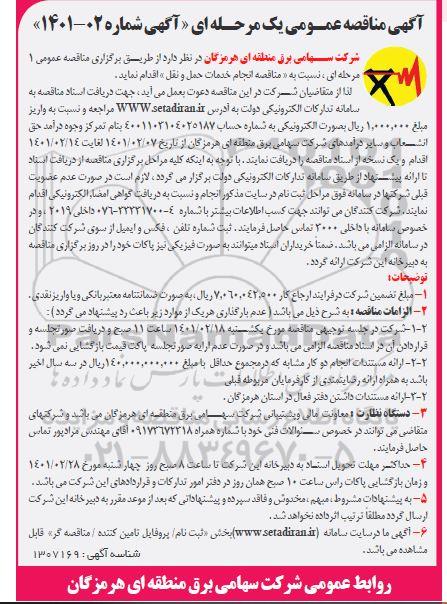 آگهی مناقصه عمـومی یک مرحـلـه ای «آگهی شماره ۰۲-۱۴۰۱»
شرکت سـهامی برق منطقه ای هرمزگان در نظر دارد از طریـق برگزاری مناقصه عمومی ۱
مرحله ای ، نسبت به « مناقصه انجام خدمات حمل و نقل » اقدام نماید .
لذا از متقاضیان شـرکت در این مناقصه دعوت بعمل می آید ، جهت دریافت اسناد مناقصه به
سامانه تدارکات الکترونیکی دولت به آدرس WWW.setadiran.ir مراجعه و نسبت به واریز
مبلغ ۱,۰۰۰,۰۰۰ ریال بصورت الکترونیکی به شماره حساب ۴۰۰۱۱۰۳۱۰۴۰۲۵۱۸۷ بنام تمرکز وجوه درآمد حق
انشـعاب و سایر درآمدهای شرکت سهامی برق منطقه ای هرمزگان از تاریخ ۱۴۰۱/۰۲/۰۷ لغایت ۱۴۰۱/۰۲/۱۴
اقدام و یک نسخه از اسناد مناقصه را دریافت نمایند . با توجه به اینکه کلیه مراحل برگزاری مناقصه از دریافت اسناد
تا ارائه پیشـنهاد از طریق سامانه تدارکات الکترونیکی دولت برگزار می گردد ، لازم است در صورت عدم عضویت
قبلی شرکتها در سامانه فوق مراحل ثبت نام در سایت مذکور انجام و نسبت به دریافت گواهی امضاء الکترونیکی اقدام
نمایند. شرکت کنندگان می توانند جهت کسب اطلاعات بیشتر با شماره ۴-۰۷۶۳۳۳۳۱۷۰۰ داخلی ۲۰۱۹ ، و در
خصوص سامانه با داخلی ۳۰۰۰ تماس حاصل فرمایند . ثبت شماره تلفن ، فکس و ایمیل از سوی شرکت کنندگان
در سامانه الزامی می باشد . ضمناً خریداران اسناد میتوانند به صورت فیزیکی نیز پاکات خود را در روز برگزاری مناقصه
به دبیرخانه این شرکت ارائه گردد .
توضیحات:
۱- مبلغ تضمین شرکت در فرایند ارجاع کار ۷,۰۶۰,۰۴۲,۵۰۰ ریال، به صورت ضمانتنامه معتبر بانکی و یا واریز نقدی .
۲- الزامات مناقصه : به شرح ذیل می باشد ( عدم بارگذاری هریک از موارد زیر باعث رد پیشنهاد می گردد ) :
۲-۱-شرکت در جلسه توجیهی مناقصه مورخ یکشـنبه ۱۴۰۱/۰۲/۱۸ ساعت ۱۱ صبح و دریافت صورتجلسه و
قراردادن آن در اسناد مناقصه الزامی می باشد و در صورت عدم ارایه صورتجلسه پاکت قیمت بازگشایی نمی شود .
۲-۲- ارائه مستندات انجام دو کار مشابه که در مجموع حداقل با مبلغ ۱۴۰,۰۰۰,۰۰۰,۰۰۰ ریال در سه سال اخیر
باشد به همراه ارائه رضایتمندی از کارفرمایان مربوطه قبلی
۲-۳-ارائه مستندات داشتن دفتر فعال در استان هرمزگان.
۳- دستگاه نظارت : معاونت مالی و پشتیبانی شرکت سـهـامی برق منطقـه ای هرمزگان می باشد و شرکتهای
متقاضی می توانند در خصوص سـئوالات فنی خود با شماره همراه ۰۹۱۷۳۶۷۲۳۱۸ آقای مهندس مرادپور تماس
حاصل فرمایند.
۴- حداکثر مهلت تحویل اسناد به دبیرخانه این شرکت تا ساعت ۸ صبح روز چهار شنبه مورخ ۱۴۰۱/۰۲/۲۸
و زمان بازگشایی پاکات راس ساعت ۱۰ صبح همان روز در دفتر امور تدارکات و قراردادهای این شرکت می باشد .
۵- به پیشنهادات مشروط ، مبهم ، مخدوش و فاقد سپرده و پیشنهاداتی که بعد از موعد مقرر به دبیرخانه این شرکت
ارسال گردد مطلقاً ترتیب اثر داده نخواهد شد .
۶- آگهی ما در سایت سامانه (www.setadiran.ir) بخش «ثبت نام/ پروفایل تامین کننده / مناقصه گر» قابل
مشاهده می باشد .
شناسه آگهی : ۱۳۰۷۱۶۹
روابط عمومی شرکت سهامی برق منطقه ای هرمزگان
۰۲۱-۸۸۳۴۹۶۷۰-۵